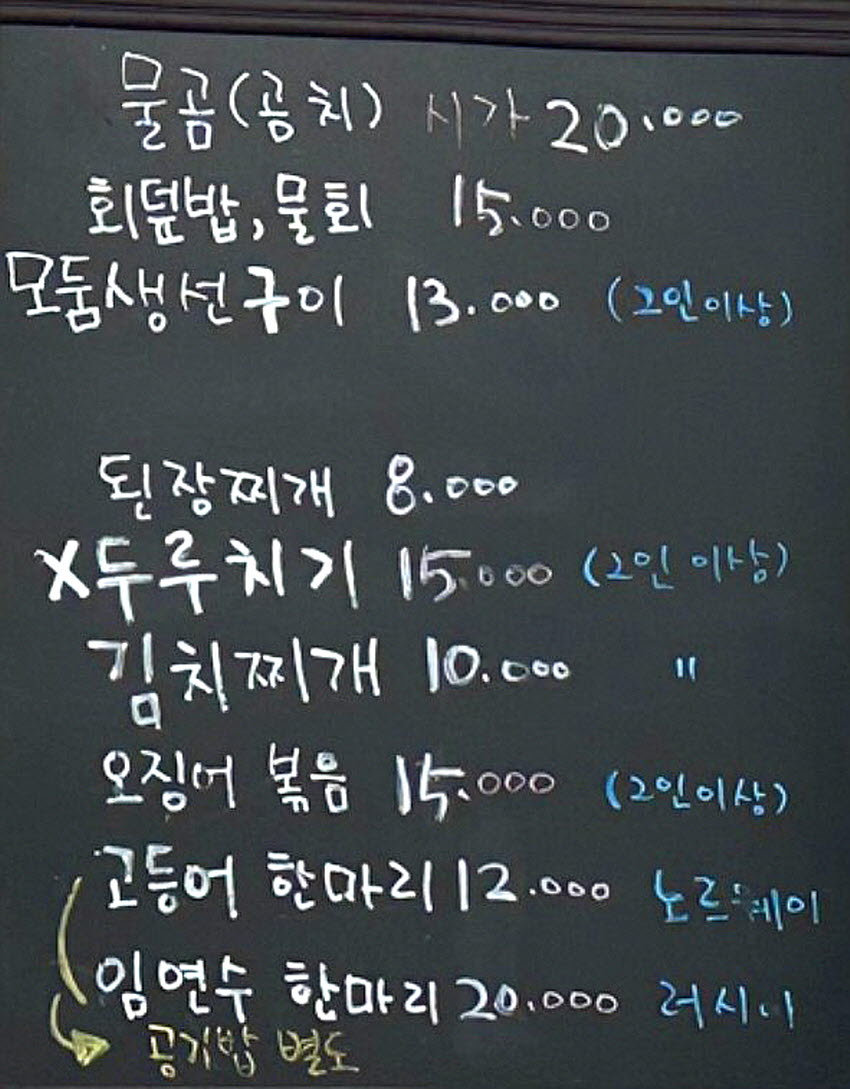 물곰(곰치) 시가 20.000
회덮밥, 물회 15.000
모둠생선구이 13.000 (2인이상)
된장찌개 8.000
X두루치기 15.000 (2인이상)
김치찌개 10.000 "
오징어 볶음 15.000 (2인이상)
고등어 한마리 12.000 노르웨이
임연수 한마리 20.000 러시아
공기밥 별도